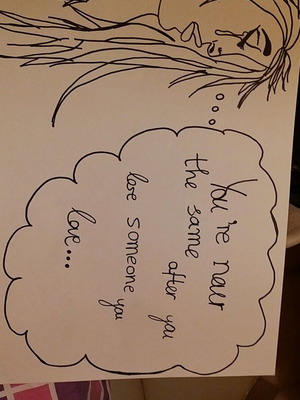 You're never
the same
after you
lose someone you
love...